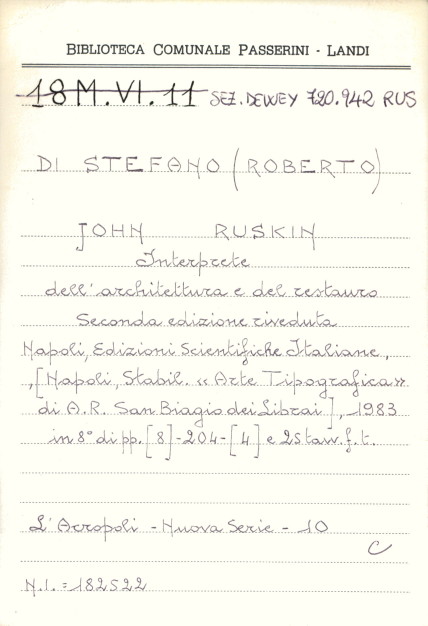 BIBLIOTECA COMUNALE PASSERINI - LANDI
18 M. VI. 11 SEZ. DEWEY 720.942 RUS
DI STEFANO (ROBERTO)
JOHN RUSKIN
Interprete
dell'architettura e del restauro
Seconda edizione riveduta
Napoli, Edizioni Scientifiche Italiane,
,[Napoli, Stabil. «Arte Tipografica»
di A.R. San Biagio dei Librai], 1983
in 8° di pp. [8]-204-[4] e 25 tav. f. t.
L'Acropoli - Nuova Serie - 10
C
N.I. = 182522